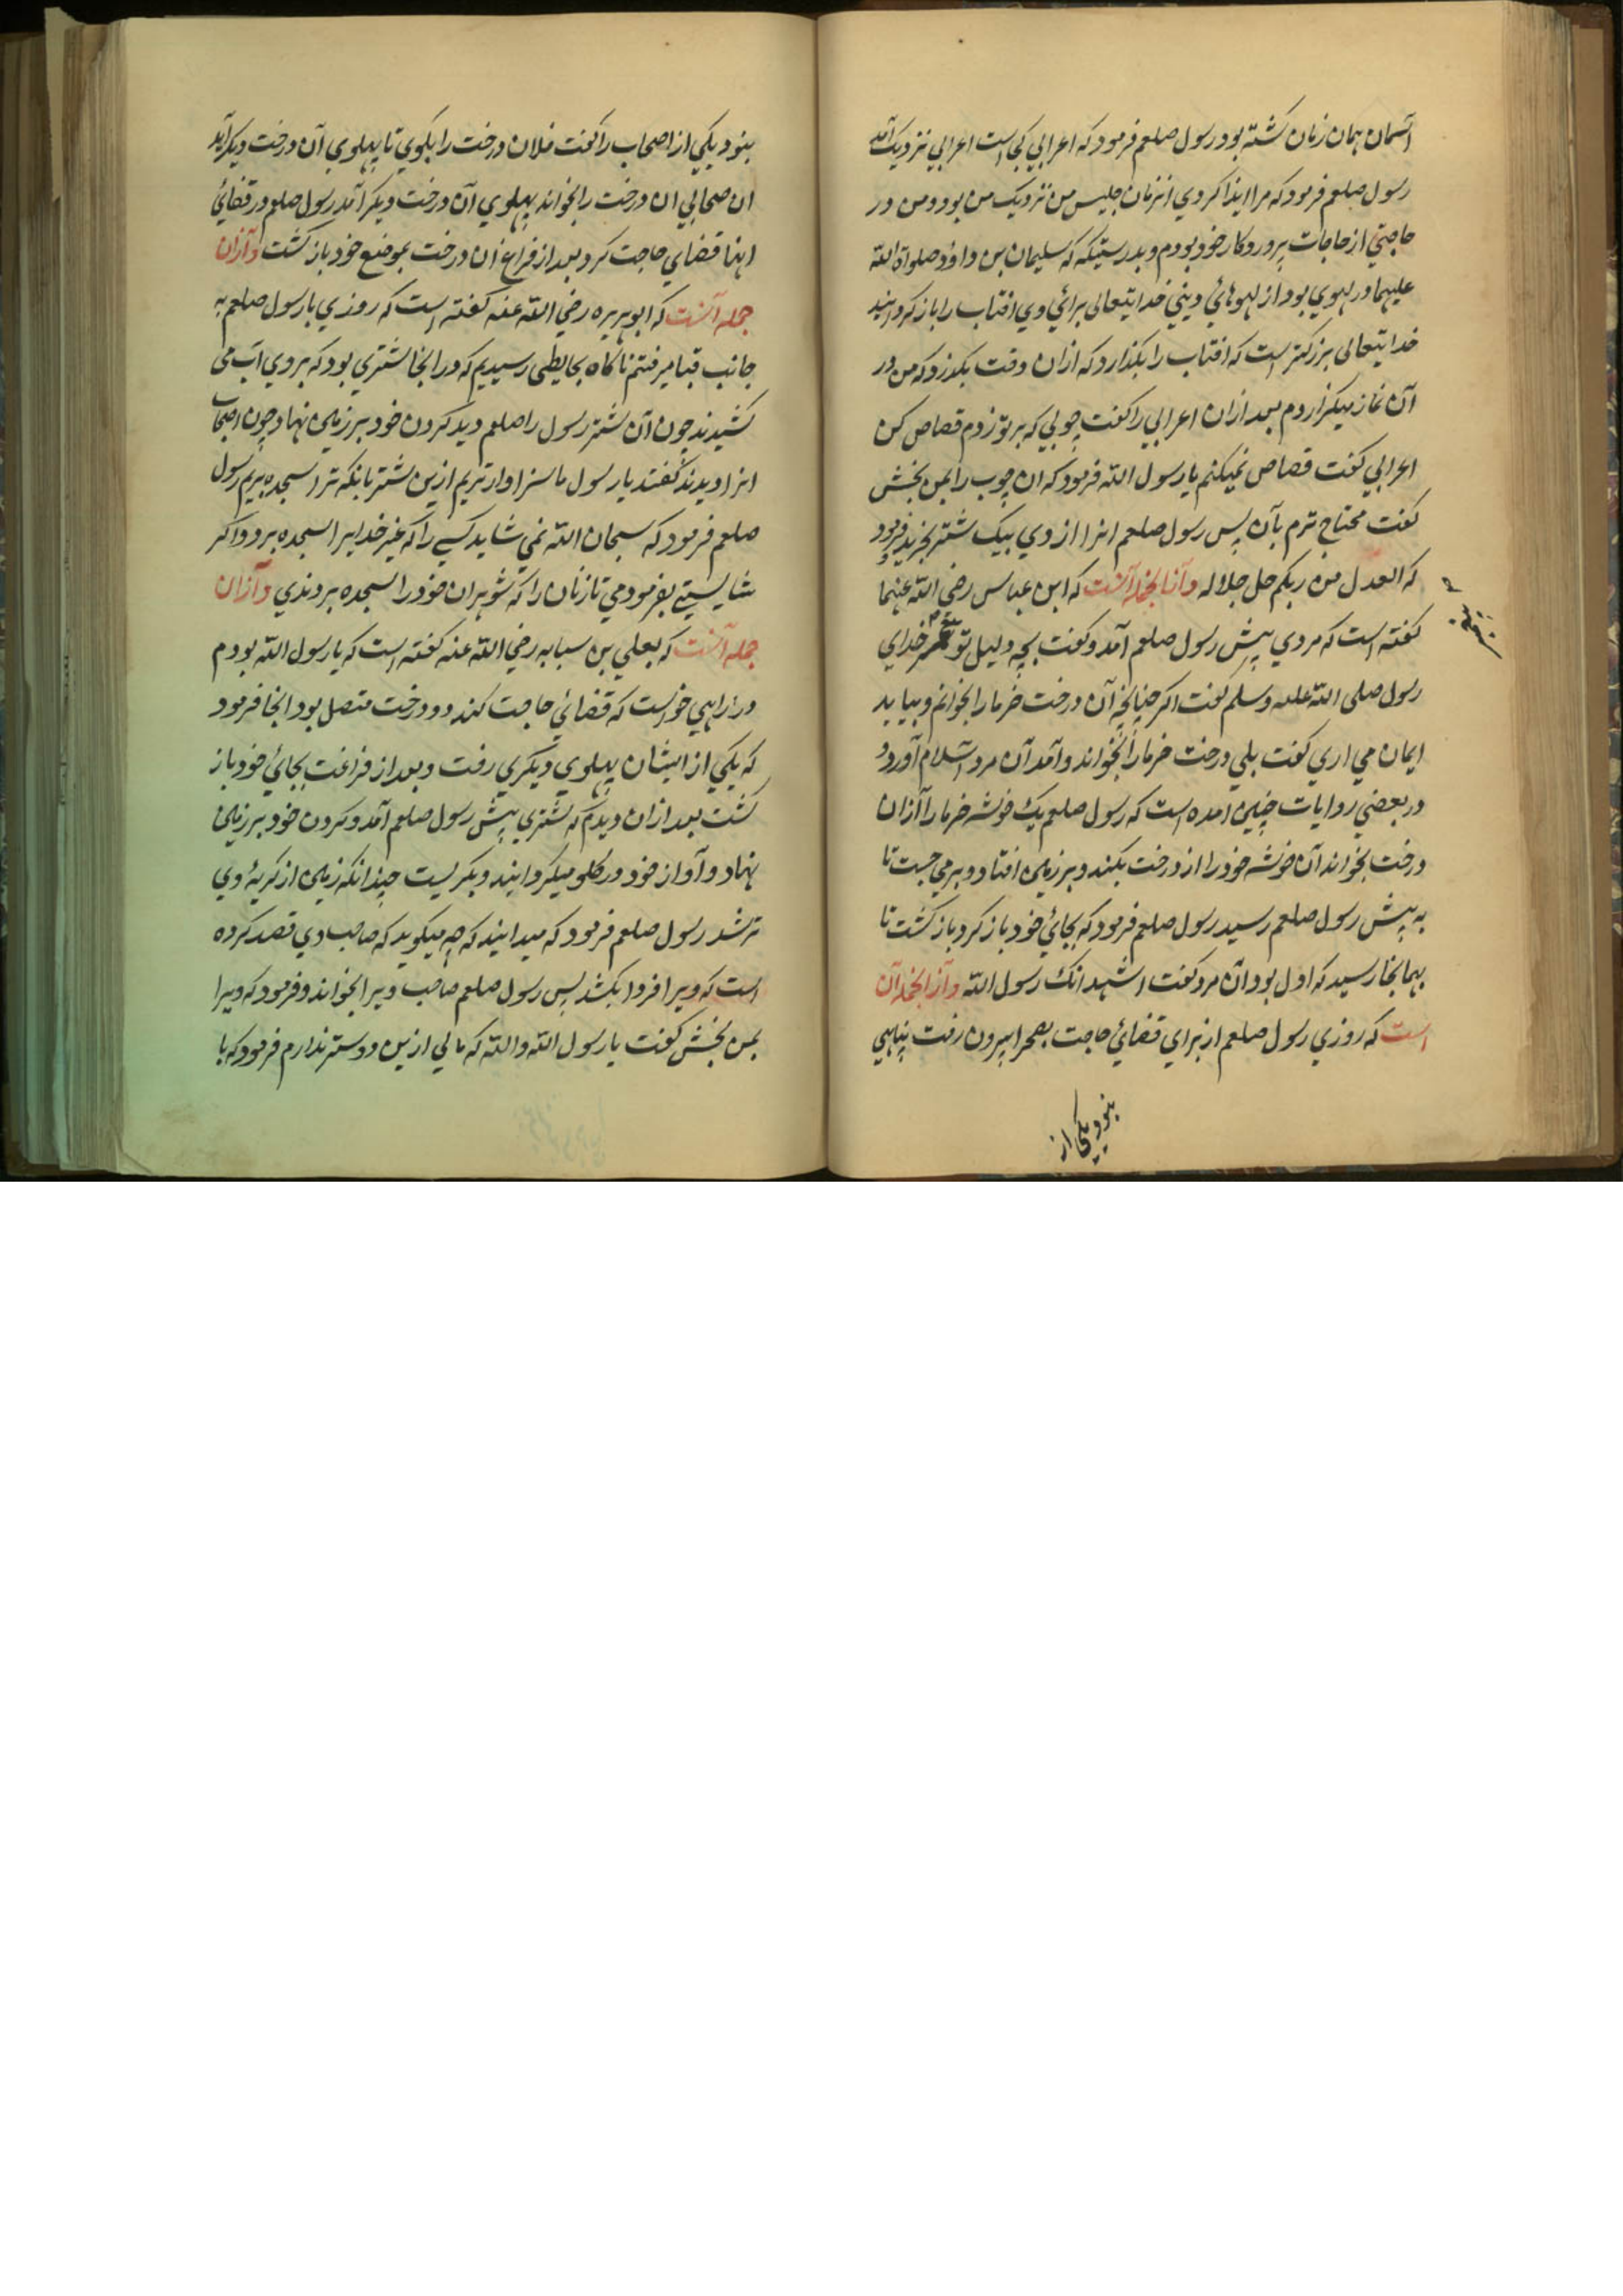 آسمان همان زمان كشته بود رسول صلعم فرمود كه اعرابي كجا است اعرابي نزديك آمد
رسول صلعم فرمود كه مرا ايذا كردي انزمان جليس من نزديك من بود و من در
حاجتي از حاجات پروردكار خود بودم و بدرستيكه كه سليمان بن داؤد صلواة الله
عليهما در لهوي بود از لهوهائ ديني خدايتعالى برائ وي افتاب را باز كردانيد
خدايتعالى بزركتر است كه افتاب را بكذارد كه ازان وقت بكذرد كه من در
آن نماز ميكزاردم بعد ازان اعرابي را كفت چوبي كه بر تو زدم قصاص كن
اعرابي كفت قصاص نميكنم يا رسول الله فرمود كه ان چوب را بمن بخش
كفت محتاج ترم بآن پس رسول صلعم انرا از وي بيك شتر بخريد و فرمود
كه العدل من ربكم جل جلاله وآنا بجمله آنست كه ابن عباس رضي الله عنهما
كفته است كه مردي پيش رسول صلعم آمد و كفت بچه دليل تو خداي
رسول صلى الله عليه وسلم كفت اكر چنانچه آن درخت خرما را بخوانم و بيايد
ايمان مي اري كفت بلي درخت خرما را بخواند و آمد آن مرد اسلام آورد و
در بعضي روايات چنين امده است كه رسول صلعم يك خوشه خرما را ازان
درخت بخواند آن خوشه خود را از درخت بكند و بر زمين افتاد و بر مي جست تا
به پيش رسول صلعم رسيد رسول صلعم فرمود كه بجائ خود باز كرد باز كشت تا
بهمانجا رسيد كه اول بود آن مرد كفت اشهد انك رسول الله وآز انجمله آن
است كه روزي رسول صلعم از براي قضائ حاجت بصحرا بيرون رفت پناهي
نبود يكي از
نبود يكي از اصحاب را كفت فلان درخت را بكوي تا پهلوي آن درخت ديكر آيد
ان صحابي ان درخت را بخواند پهلوي آن درخت ديكر آمد رسول صلعم در قضائ
انها قضاي حاجت كرد بعد از فراغ ان درخت بموضع خود باز كشت وآزان
جمله آنست كه ابو هريره رضي الله عنه كفته است كه روزي با رسول صلعم به
جانب قبا ميرفتم ناكاه بحايطى رسيديم كه در انجا شتري بود كه بروي آب مى
كشيدند چون آن شتر رسول را صلعم ديد كردن خود بر زمين نهاد چون اصحاب
انرا ديدند كفتند يا رسول ما سزاوار تريم ازين شتر بانكه ترا سجده بريم رسول
صلعم فرمود كه سبحان الله نمي شايد كسي را كه غير خدايرا سجده برد و اكر
شايستي بفرمودمي تا زنان را كه شوهران خود را سجده بردندي وآزان
جمله آنست كه يعلي بن سبابه رضي الله عنه كفته است كه با رسول الله بودم
در راهي خواست كه قضائ حاجت كند دو درخت متصل بود انجا فرمود
كه يكي از ايشان پهلوي ديكري رفت و بعد از فراغت بجائ خود باز
كشت بعد ازان ديدم كه شتري پيش رسول صلعم آمد و كردن خود بر زمين
نهاد و آواز خود در كلو ميكردانيد و بكريست چندانكه زمين از كريهٔ وي
تر شد رسول صلعم فرمود كه ميدانيد كه چه ميكويد كه صاحب وي قصد كرده
است كه ويرا فردا بكشد پس رسول صلعم صاحب ويرا بخواند و فرمود كه ويرا
بمن بخش كفت يا رسول الله والله كه مالي ازين دوستر ندارم فرمود كه با